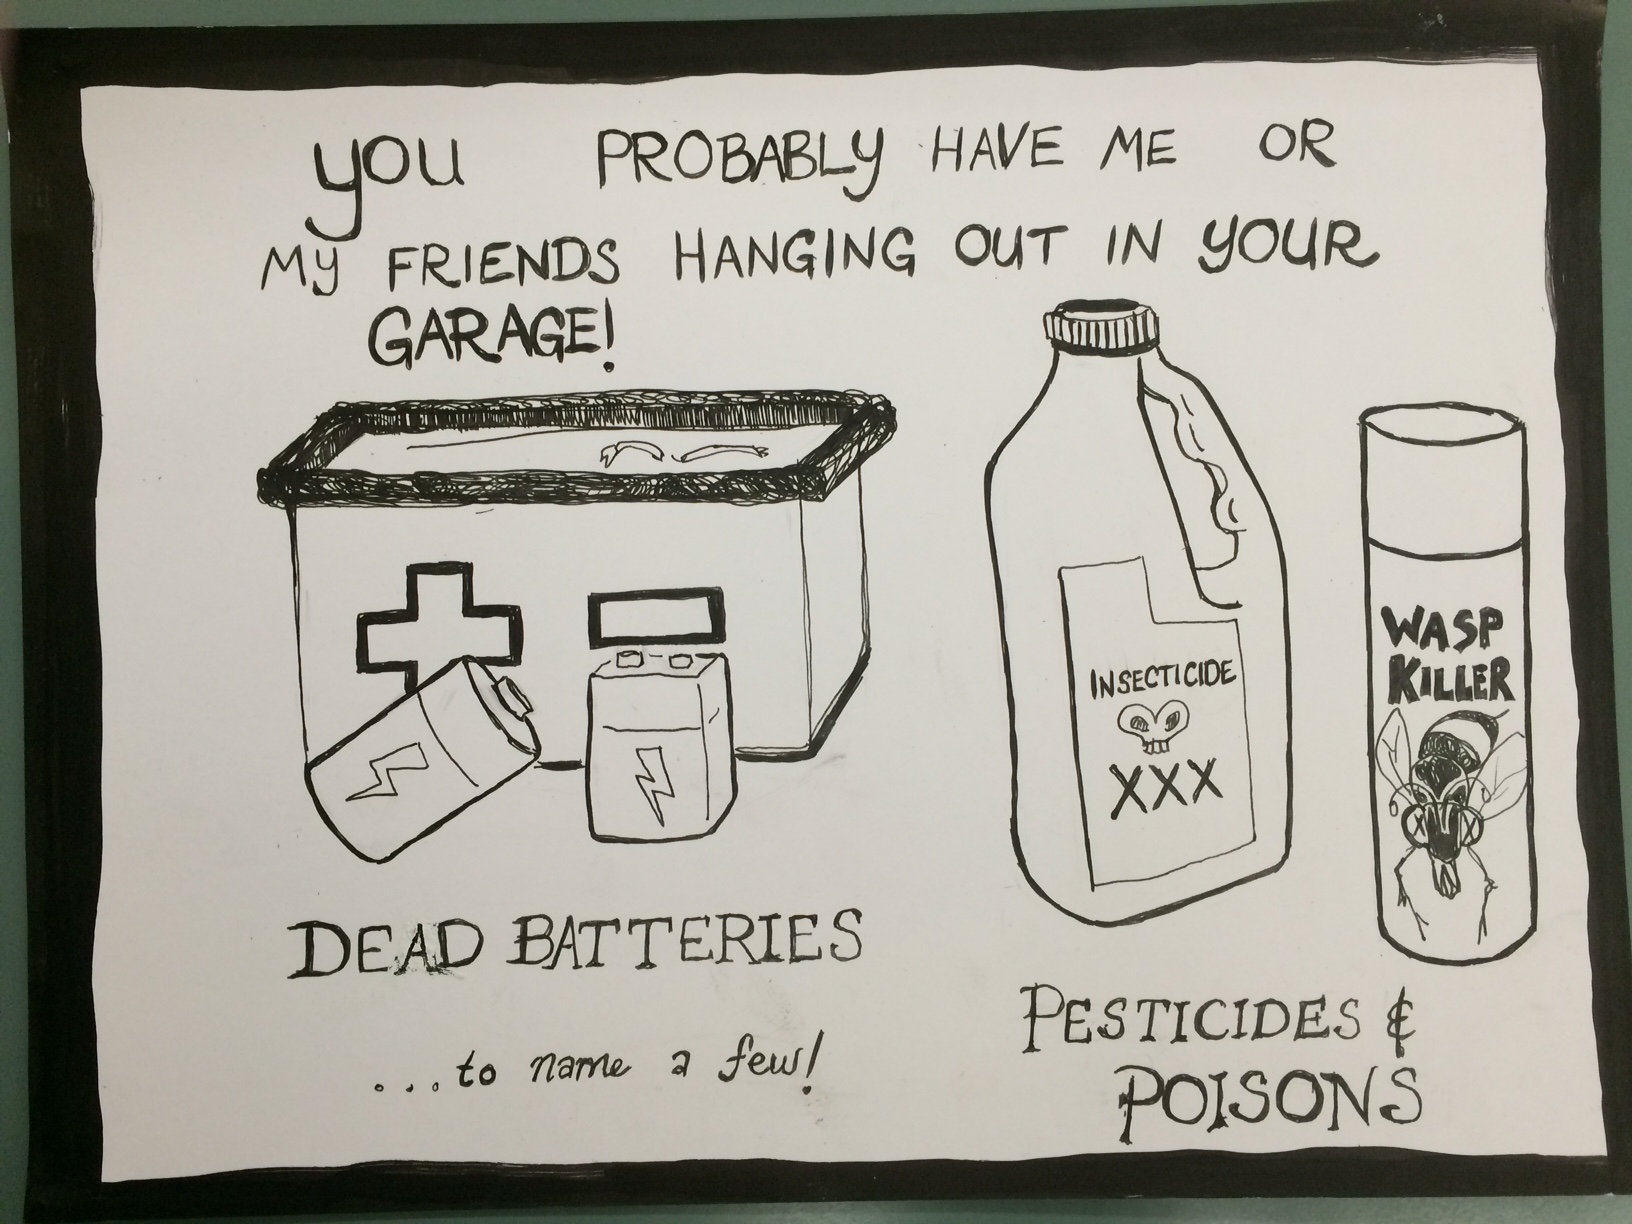 you PROBABLY HAVE ME OR
MY FRIENDS HANGING OUT IN YOUR
GARAGE!
INSECTICIDE
XXX
WASP
KILLER
DEAD BATTERIES
PESTICIDES &
POISONS
...to name a few!